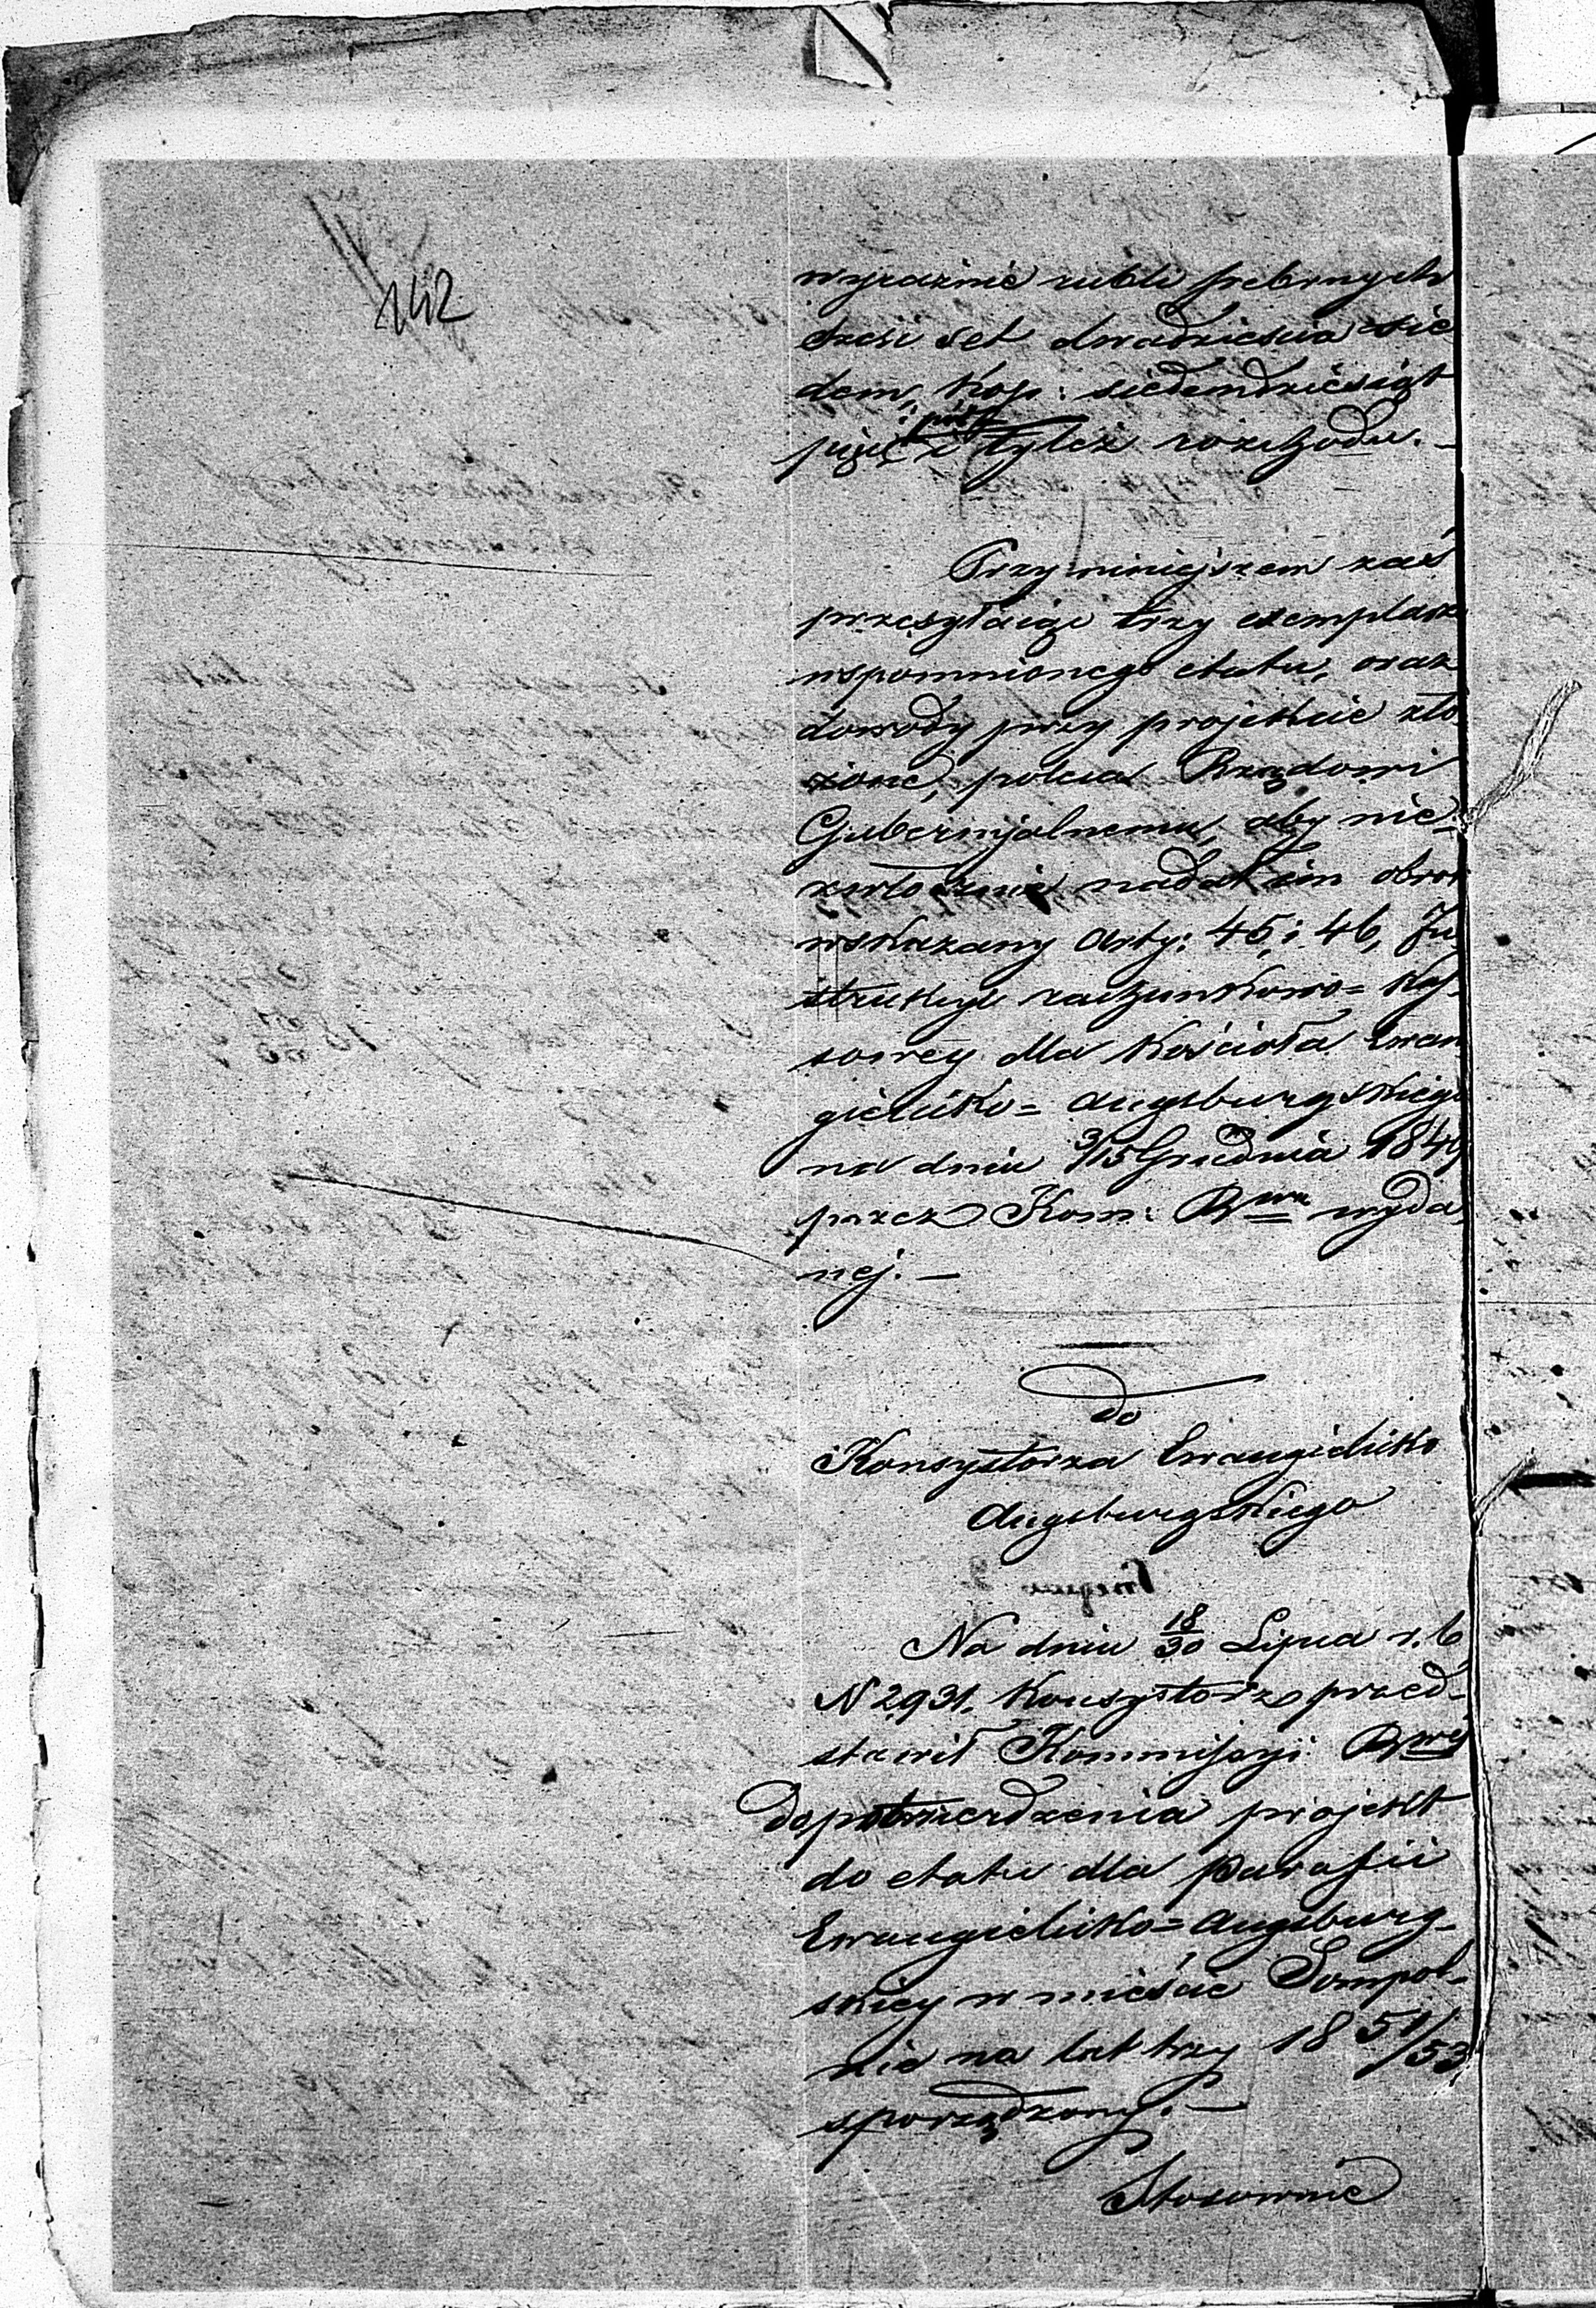 142
wyraźnie rubli srebrnych
sześć set dwadzieścia sie
dem, Kop: siedemdziesiąt
i pół
pięć i tyleż rozchodu. —
Przy niniejszem zaś
przesyłaiąc trzy exemplarze
wspomnionego etatu, oraz
dowody przy projekcie zło
żone, poleca Rządowi
Gubernjalnemu, aby nie-
zwłocznie nadał im obrot
wskazany Arty: 45, i 46, In
strukcyi rachunkowo= Kas-
sowey dla Kościoła Ewan
gielicko= Augsburgskiego
na dniu 3/15 Grudnia 1849
przez Kom: Rwą wyda
nej. —
Do
Konsystorza Ewangielicko
Augsburgskiego
Na dniu 18/30 Lipca r. b,
N 2931. Konsystorz przed-
stawił Kommissyi Rwej
do potwierdzenia projekt
do etatu dla parafii
Ewangielicko= Augsburg-
skiey w mieście Sompol-
nie na lat trzy 1851/53
sporządzony. —
Stosownie